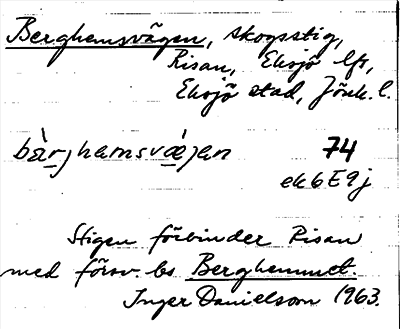 Berghemsvägen, skogsstig,
Risan, Eksjö lfs,
Eksjö stad, Jönk. l.
bæ̀rjhemsvǽjen 74
ek 6E9j
Stigen förbinder Risan
med försv. bs Berghemmet.
Inger Danielson 1963.